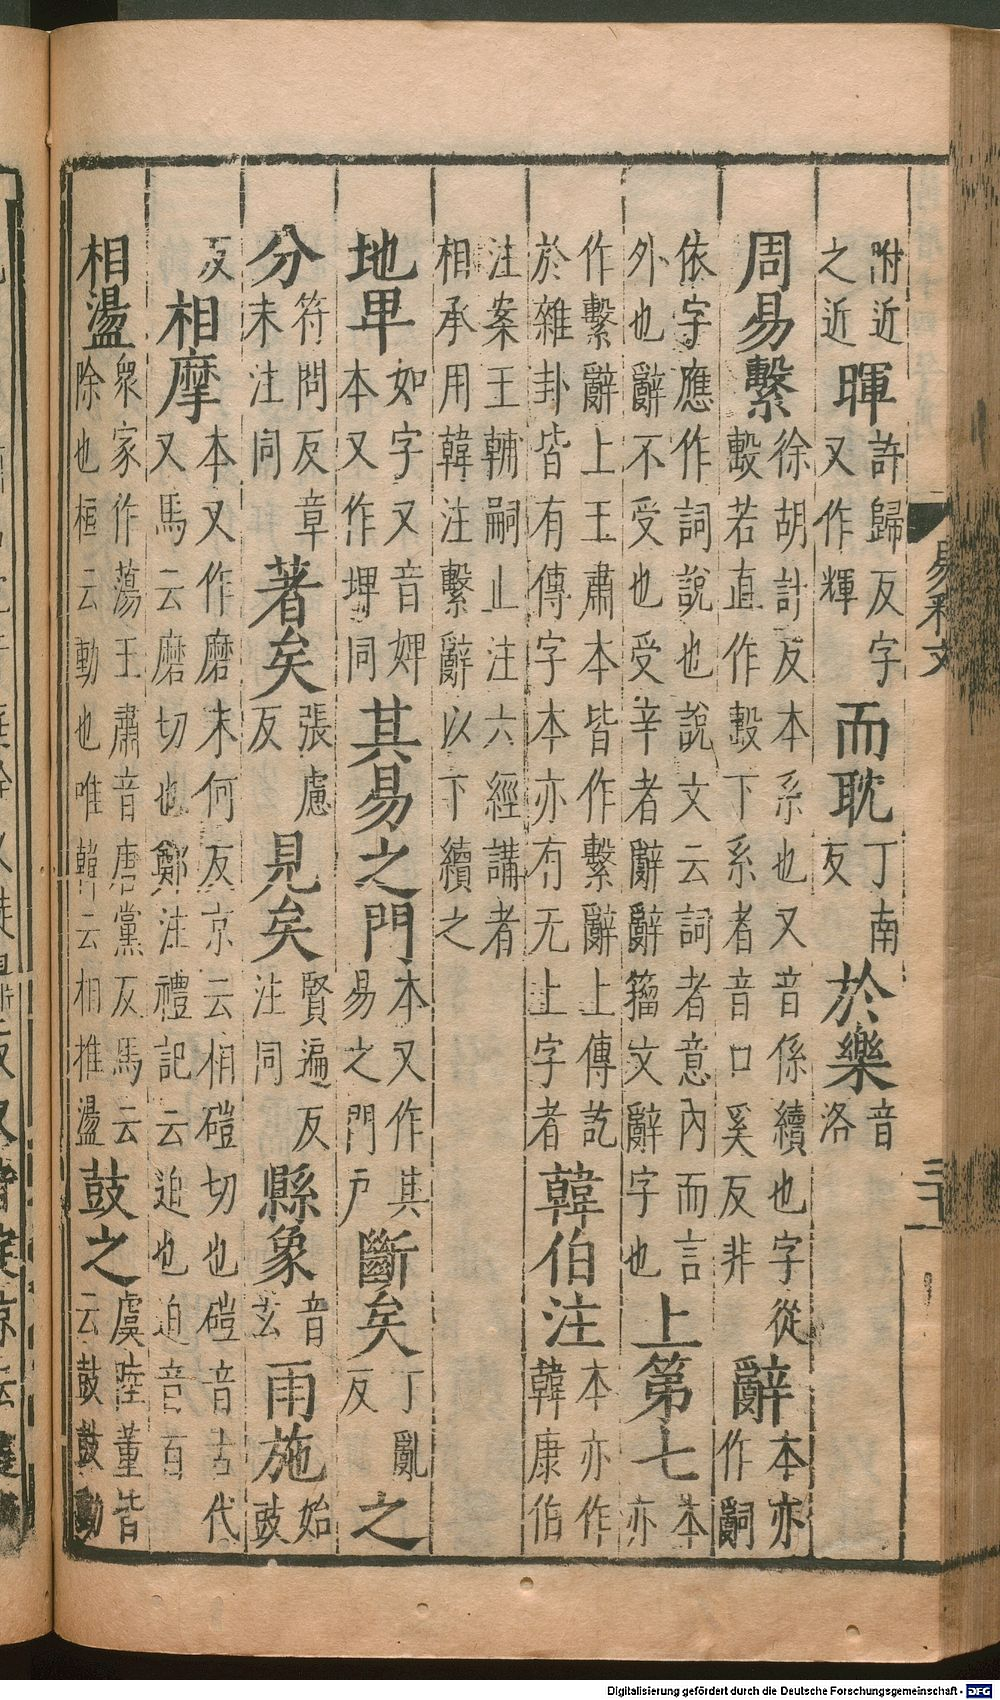 附近之近暉許歸反字又作輝而耽丁南反於樂音洛
周易繫徐胡計反本系也又音係續也字從毄若直作毄下系者音口奚反非辭本亦作嗣
依字應作詞說也說文云詞者意內而言外也辭不受也受辛者辭辭籀文辭字也上第七本亦
作繫辭上王肅本皆作繫辭上傳訖於雜卦皆有傳字本亦有无上字者韓伯注本亦作韓康伯
注案王輔嗣止注六經講者相承用韓注繫辭以下續之
地卑如字又音婢本又作埤同其易之門本又作其易之門戶斷矣丁亂反之
分符問反章末注同著矣張慮反見矣賢遍反注同縣象音玄雨施始豉
反相摩本又作磨末何反京云相磑切也磑音古代又馬云磨切也鄭注禮記云迫也迫音百
相盪衆家作蕩王肅音唐黨反馬云除也桓云動也唯韓云相推盪鼓之虞陸董皆云鼓鼓動
易釋文
三十一
Digitalisierung gefördert durch die Deutsche Forschungsgemeinschaft - DFG